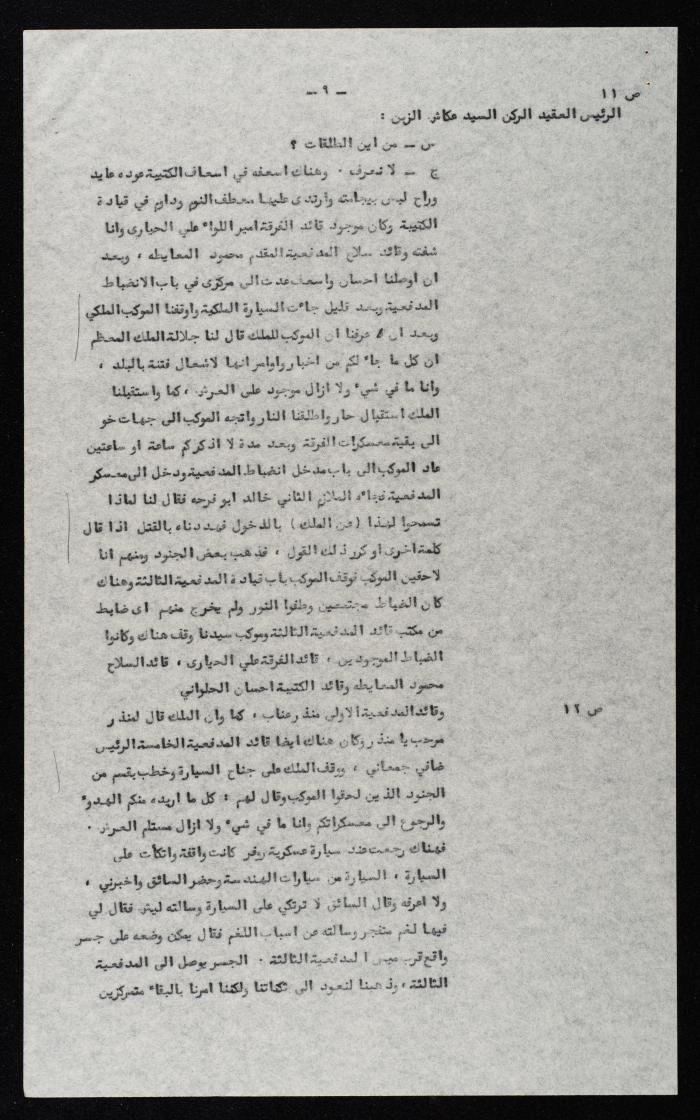 ص ١١
ـ ٩ ـ
الرئيس العقيد الركن السيد عكاش الزبن :
س ـ من اين الطلقات ؟
ج ـ لا نعرف . وهناك اسعفه في اسعاف الكتيبة عوده عايد
وراح لبس بيجامته وارتدى عليها معطف النوم وداوم في قيادة
الكتيبة وكان موجود قائد الفرقة امير اللواء علي الحيارى وانا
شفته وقائد سلاح المدفعية المقدم محمود المعايطه ، وبعد
ان اوصلنا احسان واسعف عدت الى مركزى في باب الانضباط
المدفعية وبعد قليل جاءت السيارة الملكية واوقفنا الموكب الملكي
وبعد ان عرفنا ان الموكب للملك قال لنا جلالة الملك المعظم
ان كل ما جاء لكم من اخبار واوامر انها لاشعال فتنة بالبلد ،
وانا ما في شيء ولا ازال موجود على العرش ، كما واستقبلنا
الملك استقبال حار واطلقنا النار واتجه الموكب الى جهات خو
الى بقية معسكرات الفرقة وبعد مدة لا اذكر كم ساعة او ساعتين
عاد الموكب الى باب مدخل انضباط المدفعية ودخل الى معسكر
المدفعية فجاء الملازم الثاني خالد ابو فرحه فقال لنا لماذا
تسمحوا لهذا ( عن الملك ) بالدخول فهددناه بالقتل اذا قال
كلمة اخرى او كرر ذلك القول ، فذهب بعض الجنود ومنهم انا
لاحقين الموكب فوقف الموكب باب قيادة المدفعية الثالثة وهناك
كان الضباط مجتمعين وطفوا النور ولم يخرج منهم اى ضابط
من مكتب قائد المدفعية الثالثة وموكب سيدنا وقف هناك وكانوا
الضباط الموجودين ، قائد الفرقة علي الحيارى ، قائد السلاح
محمود المعايطه وقائد الكتيبة احسان الحلواني
ص ١٢
وقائد المدفعية الاولى منذر عناب ، كما وان الملك قال لمنذر
مرحب يا منذر وكان هناك ايضا قائد المدفعية الخامسة الرئيس
ضافي جمعاني ، ووقف الملك على جناح السيارة وخطب بقسم من
الجنود الذين لحقوا الموكب وقال لهم : كل ما اريده منكم الهدوء
والرجوع الى معسكراتكم وانا ما في شيء ولا ازال مستلم العرش .
فهناك رجعت عند سيارة عسكرية روفر كانت واقفة واتكأت على
السيارة ، السيارة من سيارات الهندسة وحضر السائق واخبرني ،
ولا اعرفه وقال السائق لا ترتكي على السيارة وسالته ليش فقال لي
فيها لغم متفجر وسالته عن اسباب اللغم فقال يمكن وضعه على جسر
واقع قرب ميس المدفعية الثالثة . الجسر يوصل الى المدفعية
الثالثة ، وذهبنا لنعود الى ثكناتنا ولكننا امرنا بالبقاء متمركزين